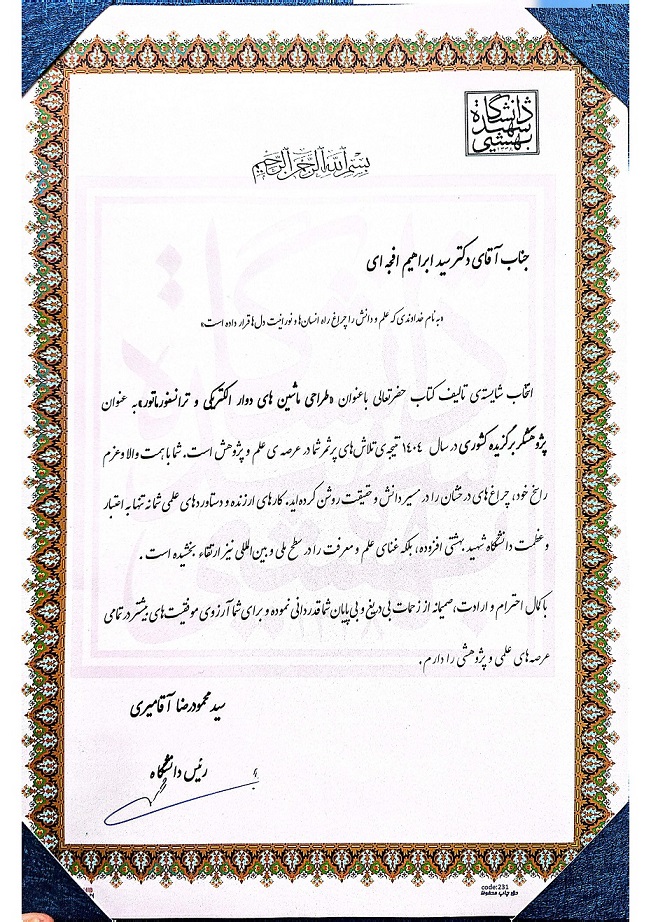 دانشگاه شهید بهشتی
بسم الله الرحمن الرحیم
جناب آقای دکتر سید ابراهیم افجه ای
«به نام خداوندی که علم و دانش را چراغ راه انسان‌ها و نورانیت دل‌ها قرار داده است»
انتخاب شایسته‌ی تالیف کتاب حضرتعالی با عنوان «طراحی ماشین های دوار الکتریکی و ترانسفورماتور» به عنوان
پژوهشگر برگزیده کشوری در سال ۱۴۰۴ نتیجه‌ی تلاش‌های پرثمر شما در عرصه ی علم و پژوهش است. شما با همت والا و عزم
راسخ خود، چراغ‌های درخشان را در مسیر دانش و حقیقت روشن کرده‌اید. کارهای ارزنده و دستاوردهای علمی شما نه تنها به اعتبار
و عظمت دانشگاه شهید بهشتی افزوده، بلکه غنای علم و معرفت را در سطح ملی و بین‌المللی نیز ارتقاء بخشیده است .
با کمال احترام و ارادت، صمیمانه از زحمات بی‌دریغ و بی‌پایان شما قدردانی نموده و برای شما آرزوی موفقیت‌های بیشتر در تمامی
عرصه‌های علمی و پژوهشی را دارم.
سید محمودرضا آقامیری
رئیس دانشگاه
code:231
حق چاپ محفوظ